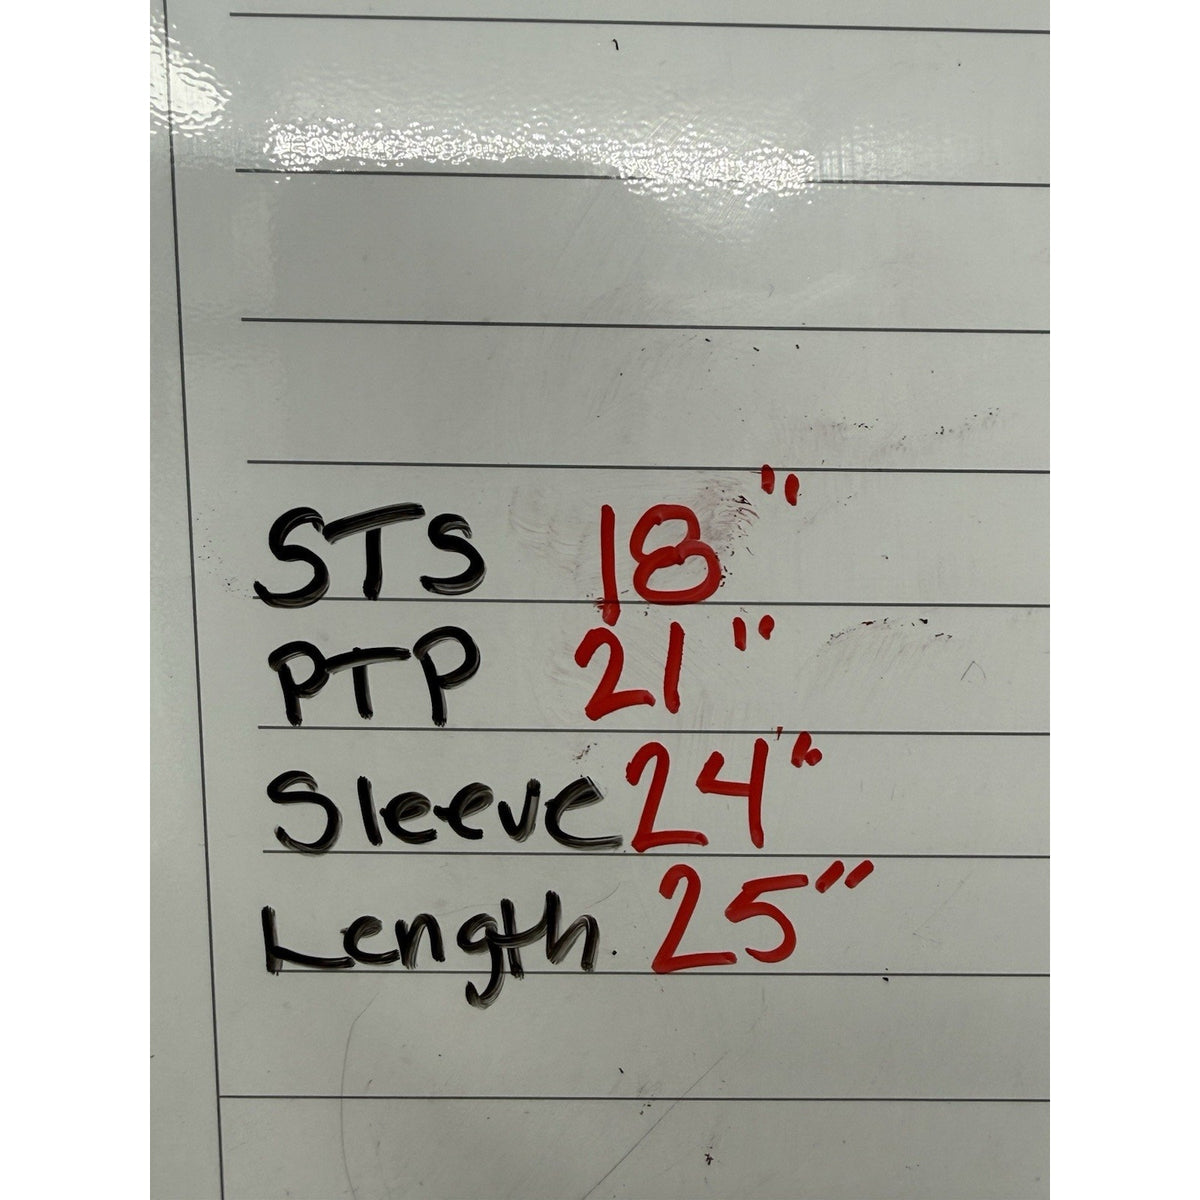 STS 18"
PTP 21"
Sleeve 24"
Length. 25"